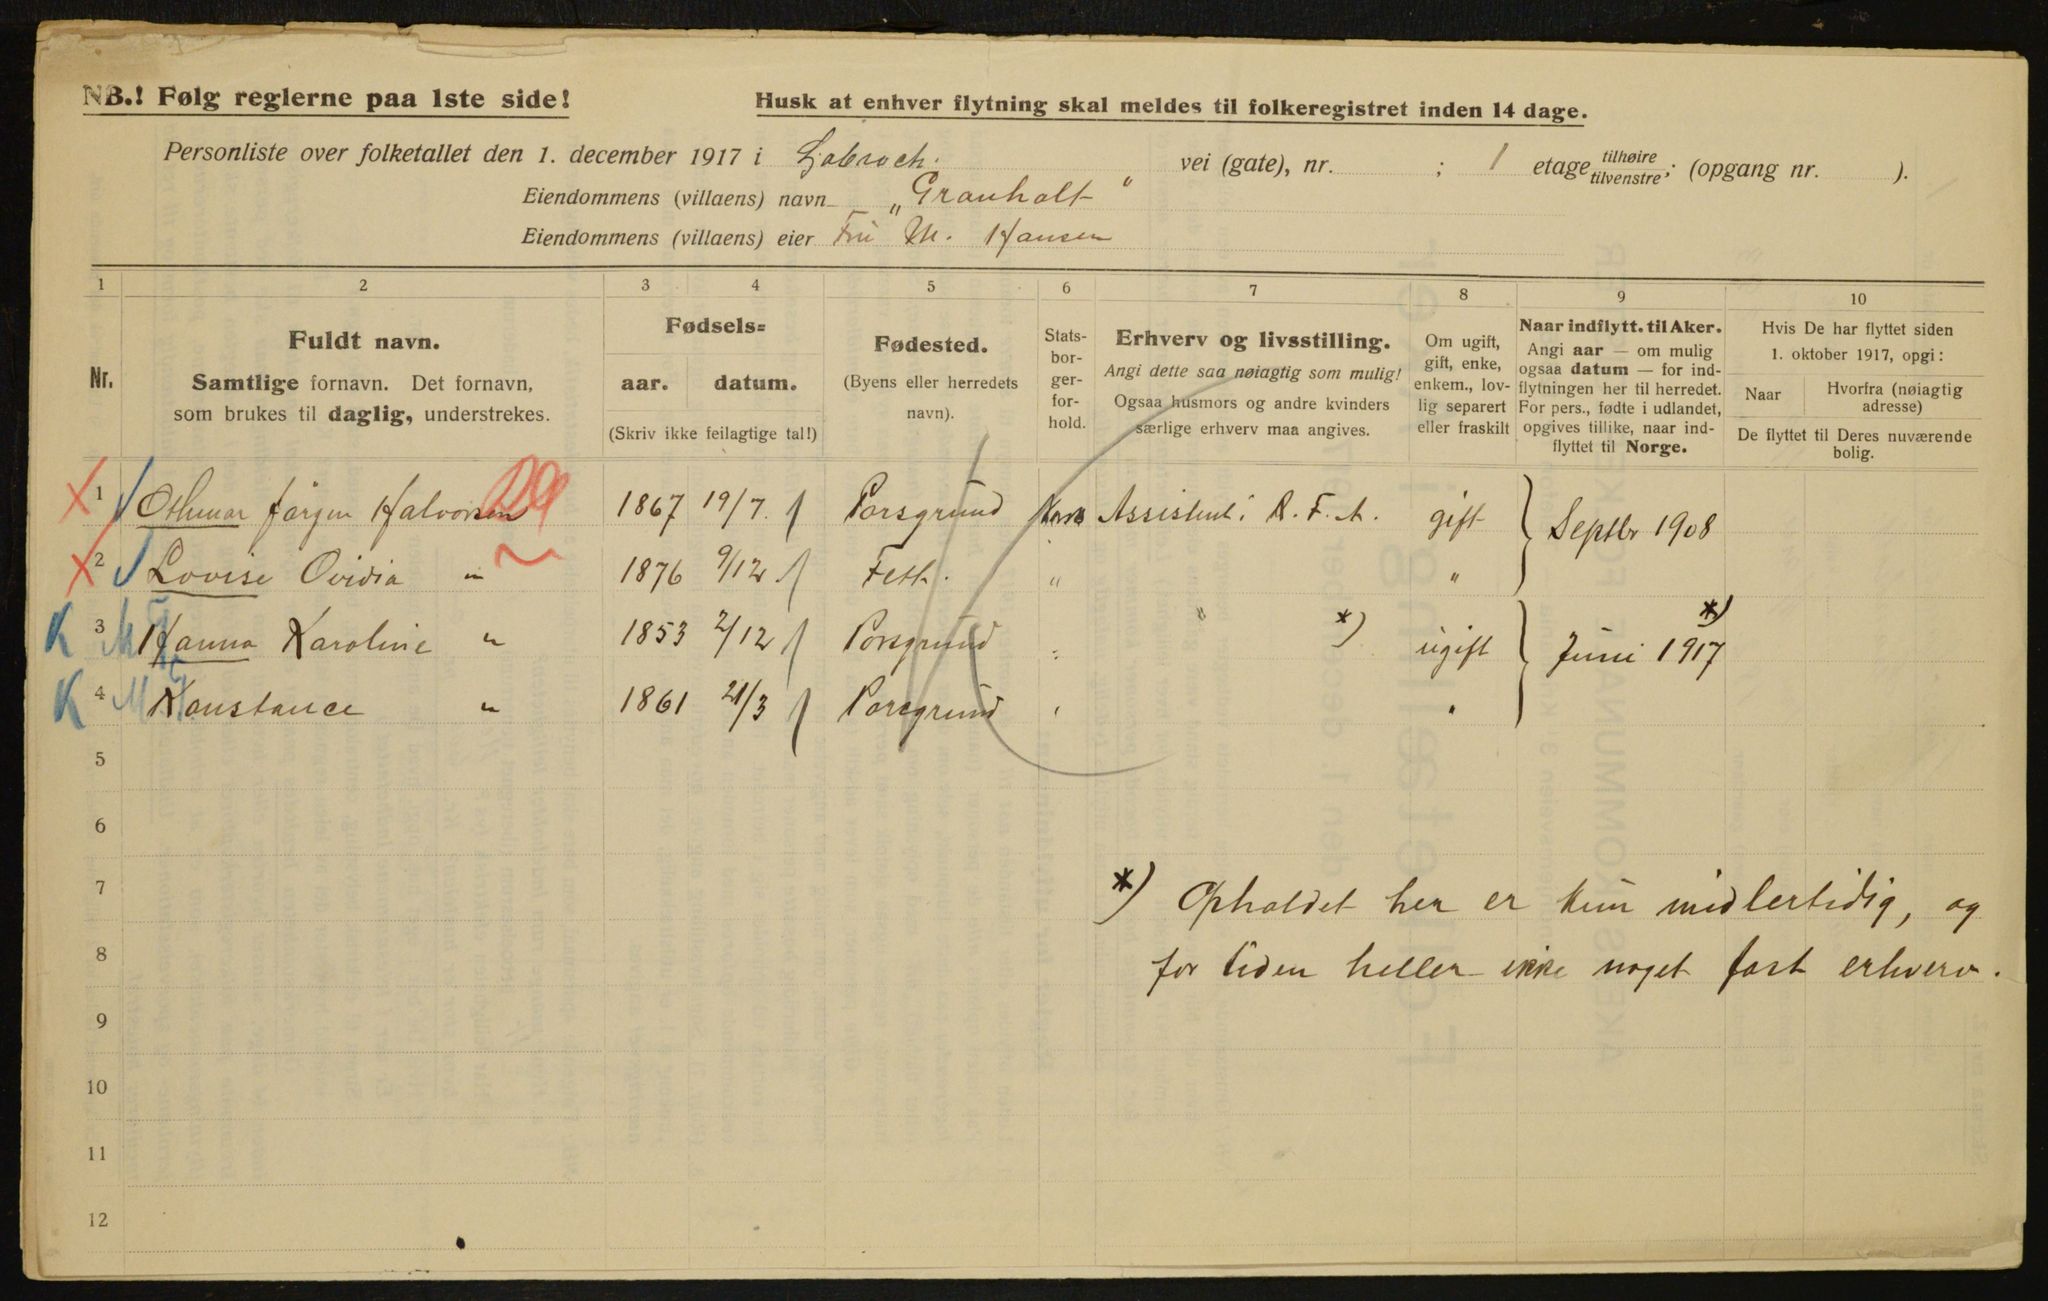 NB.! Følg reglerne paa 1ste side!
Husk at enhver flytning skal meldes til folkeregistret inden 14 dage.
Personliste over folketallet den 1. december 1917 i Ljabroch. vei (gate), nr. ; 1 etage tilhøire tilvenstre; (opgang nr. ).
Eiendommens (villaens) navn „Granholt“
Eiendommens (villaens) eier Fru M. Hansen
1 2 3 4 5 6 7 8 9 10
Nr.
Fuldt navn.
Samtlige fornavn. Det fornavn,
som brukes til daglig, understrekes.
Fødsels=
aar. datum.
(Skriv ikke feilagtige tal!)
Fødested.
(Byens eller herredets
navn).
Stats-
bor-
ger-
for-
hold.
Erhverv og livsstilling.
Angi dette saa nøiagtig som mulig!
Ogsaa husmors og andre kvinders
særlige erhverv maa angives.
Om ugift,
gift, enke,
enkem., lov-
lig separert
eller fraskilt
Naar indflytt. til Aker.
Angi aar — om mulig
ogsaa datum — for ind-
flytningen her til herredet.
For pers., fødte i udlandet,
opgives tillike, naar ind-
flyttet til Norge.
Hvis De har flyttet siden
1. oktober 1917, opgi:
Naar
Hvorfra (nøiagtig
adresse)
De flyttet til Deres nuværende
bolig.
X 1 Othmar Jørgen Halvorsen 1867 19/7. Porsgrund Norsk Assistent i R. F. A. gift } Septbr 1908
X 2 Lovise Ovidia " 1876 9/12 Feth. " "
K 3 Hanna Karoline " 1853 2/12 Porsgrund " " *) ugift } Juni 1917 *)
K 4 Konstance " 1861 21/3 Porsgrund " "
5
6
7
8
9
10
11
12
*) Opholdet her er kun midlertidig, og
for tiden heller ikke noget fast erhverv.